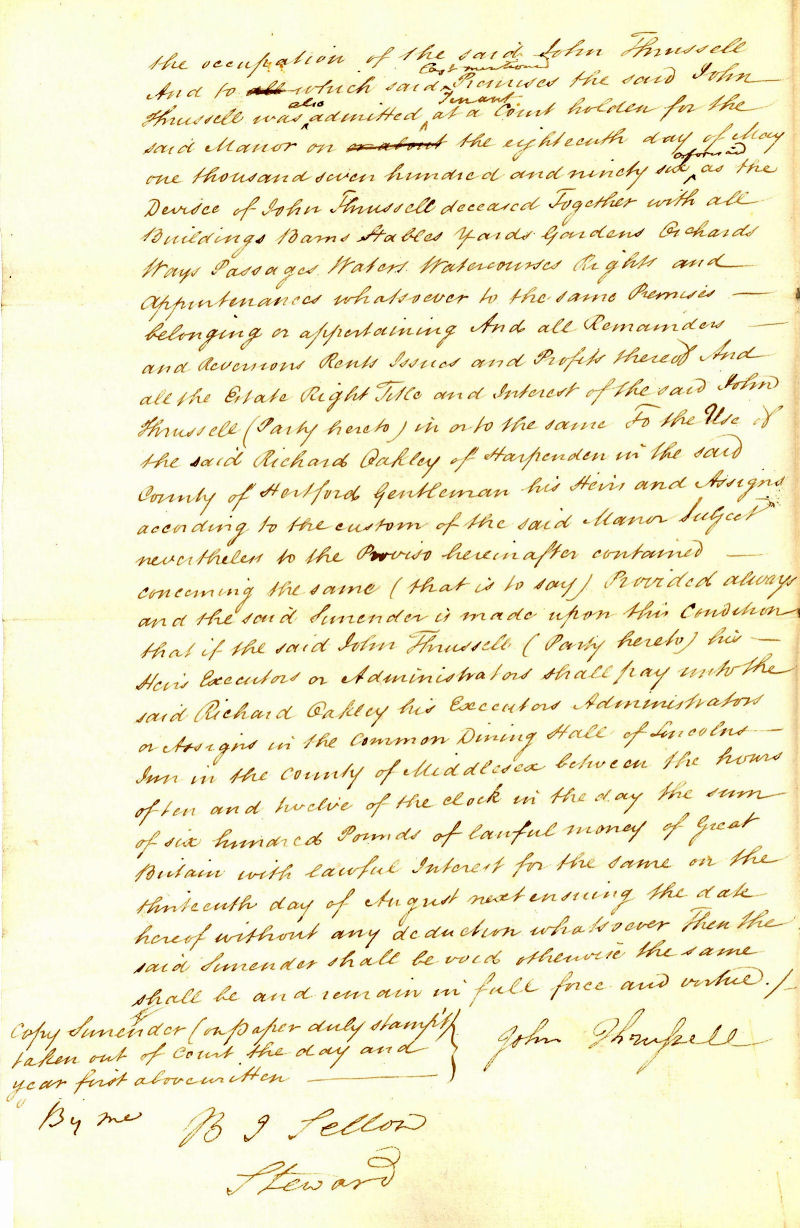 the occupation of the said John Thrussell
And to all which said last mentioned Premises the said John
Thrussell was also admitted Tenant at a Court holden for the
said Manor on on about the eighteenth day of May
one thousand seven hundred and ninety six aforesaid as the
Devisee of John Thrussell deceased Together with all
Buildings Barns Stables Yards Gardens Orchards
Ways Passages Waters Watercourses Rights and
Appurtenances whatsoever to the same Premises —
belonging or appertaining And all Remainders —
and Reversions Rents Issues and Profits thereof And
all the Estate Right Title and Interest of the said John
Thrussell (Party hereto) in or to the same To the Use of
the said Richard Oakley of Harpenden in the said
County of Hertford Gentleman his Heirs and Assigns
according to the custom of the said Manor Subject
nevertheless to the Proviso hereinafter contained —
concerning the same (that is to say) Provided always
and the said Surrender is made upon this Condition
that if the said John Thrussell (Party hereto) his —
Heirs Executors or Administrators shall pay unto the
said Richard Oakley his Executors Administrators
or Assigns in the Common Dining Hall of Lincolns —
Inn in the County of Middlesex between the hours
of ten and twelve of the clock in the day the sum
of six hundred Pounds of lawful money of Great
Britain with lawful Interest for the same on the
thirteenth day of August next ensuing the date
hereof without any deduction whatsoever Then the
said Surrender shall be void otherwise the same
shall be and remain in full force and virtue./-
Copy Surrender (on Paper duly stampt)
taken out of Court the day and
year first abovewritten —
John Thrussell
By me
B I Sellon
Steward